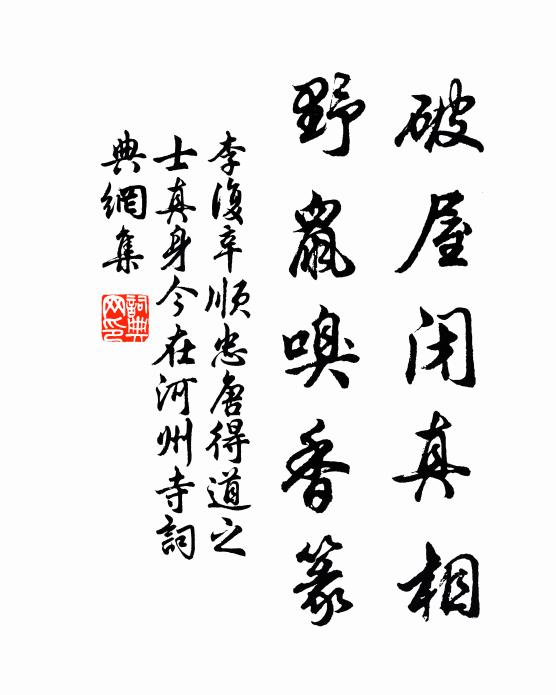 破屋闭真相
野鼠嗅香篆
李復辛順忠唐得道之
士真身今在河州寺詞
典網集
詞典网印